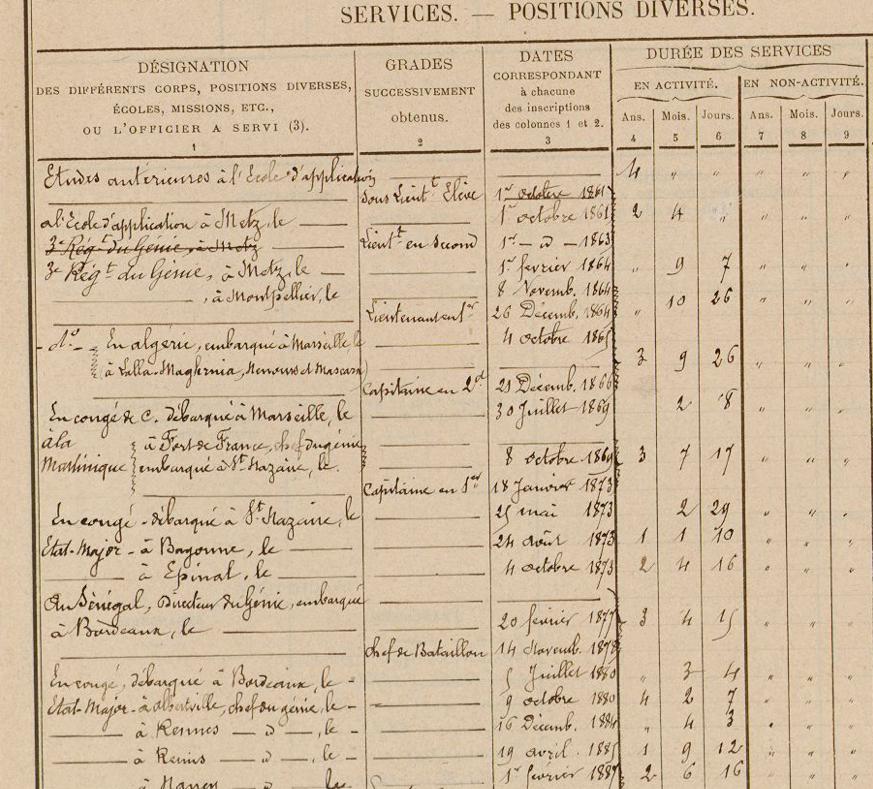 SERVICES. — POSITIONS DIVERSES.
DÉSIGNATION
DES DIFFÉRENTS CORPS, POSITIONS DIVERSES,
ÉCOLES, MISSIONS, ETC.,
OU L'OFFICIER A SERVI (3).
1
GRADES
SUCCESSIVEMENT
obtenus.
2
DATES
CORRESPONDANT
à chacune
des inscriptions
des colonnes 1 et 2.
3
DURÉE DES SERVICES
EN ACTIVITÉ. EN NON-ACTIVITÉ.
Ans. Mois. Jours. Ans. Mois. Jours.
4 5 6 7 8 9
Etudes antérieures à l'Ecole d'application 4 " " " " "
Sous Lieut.t Elève 1er octobre 1861
à l'Ecole d'application à Metz, le 1er octobre 1861 2 4 " " " "
3e Rég.t du Génie, à Metz Lieut.t en Second 1er — d° — 1863
3e Rég.t du Génie, à Metz, le 1er février 1864 " 9 7 " " "
, à Montpellier, le 8 Novemb. 1864 " 10 26 " " "
Lieutenant en 1er 26 Décemb. 1864
- d° - En algérie, embarqué à Marseille, le 4 octobre 1865 3 9 26 " " "
(à Lalla-Maghrnia, Nemours et Mascara)
Capitaine en 2d 21 Décemb. 1866
En congé de C. débarqué à Marseille, le 30 Juillet 1869 2 8 " " "
à la à Fort de France, chef du génie
Martinique embarqué à St Nazaire, le. 8 octobre 1869 3 7 17 " " "
Capitaine en 1er 18 Janvier 1873
En congé - débarqué à St Nazaire, le 25 mai 1873 2 29 " " "
Etat-Major - à Bayonne, le 24 août 1873 1 1 10 " " "
à Epinal, le 4 octobre 1873 2 4 16 " " "
Au Sénégal, Directeur du Génie, embarqué
à Bordeaux, le 20 février 1877 3 4 15 " " "
chef de Bataillon 14 Novemb. 1878
En congé, débarqué à Bordeaux, le - 5 Juillet 1880 " 3 4 " " "
Etat-Major - à albertville, chef du génie, le - 9 octobre 1880 4 2 7 " " "
à Rennes — d° —, le - 16 Décemb. 1884 " 4 3 " " "
à Reims — d° —, le - 19 avril. 1885 1 9 12 " " "
à Nancy — d° — le 1er février 1887 2 6 16 " " "